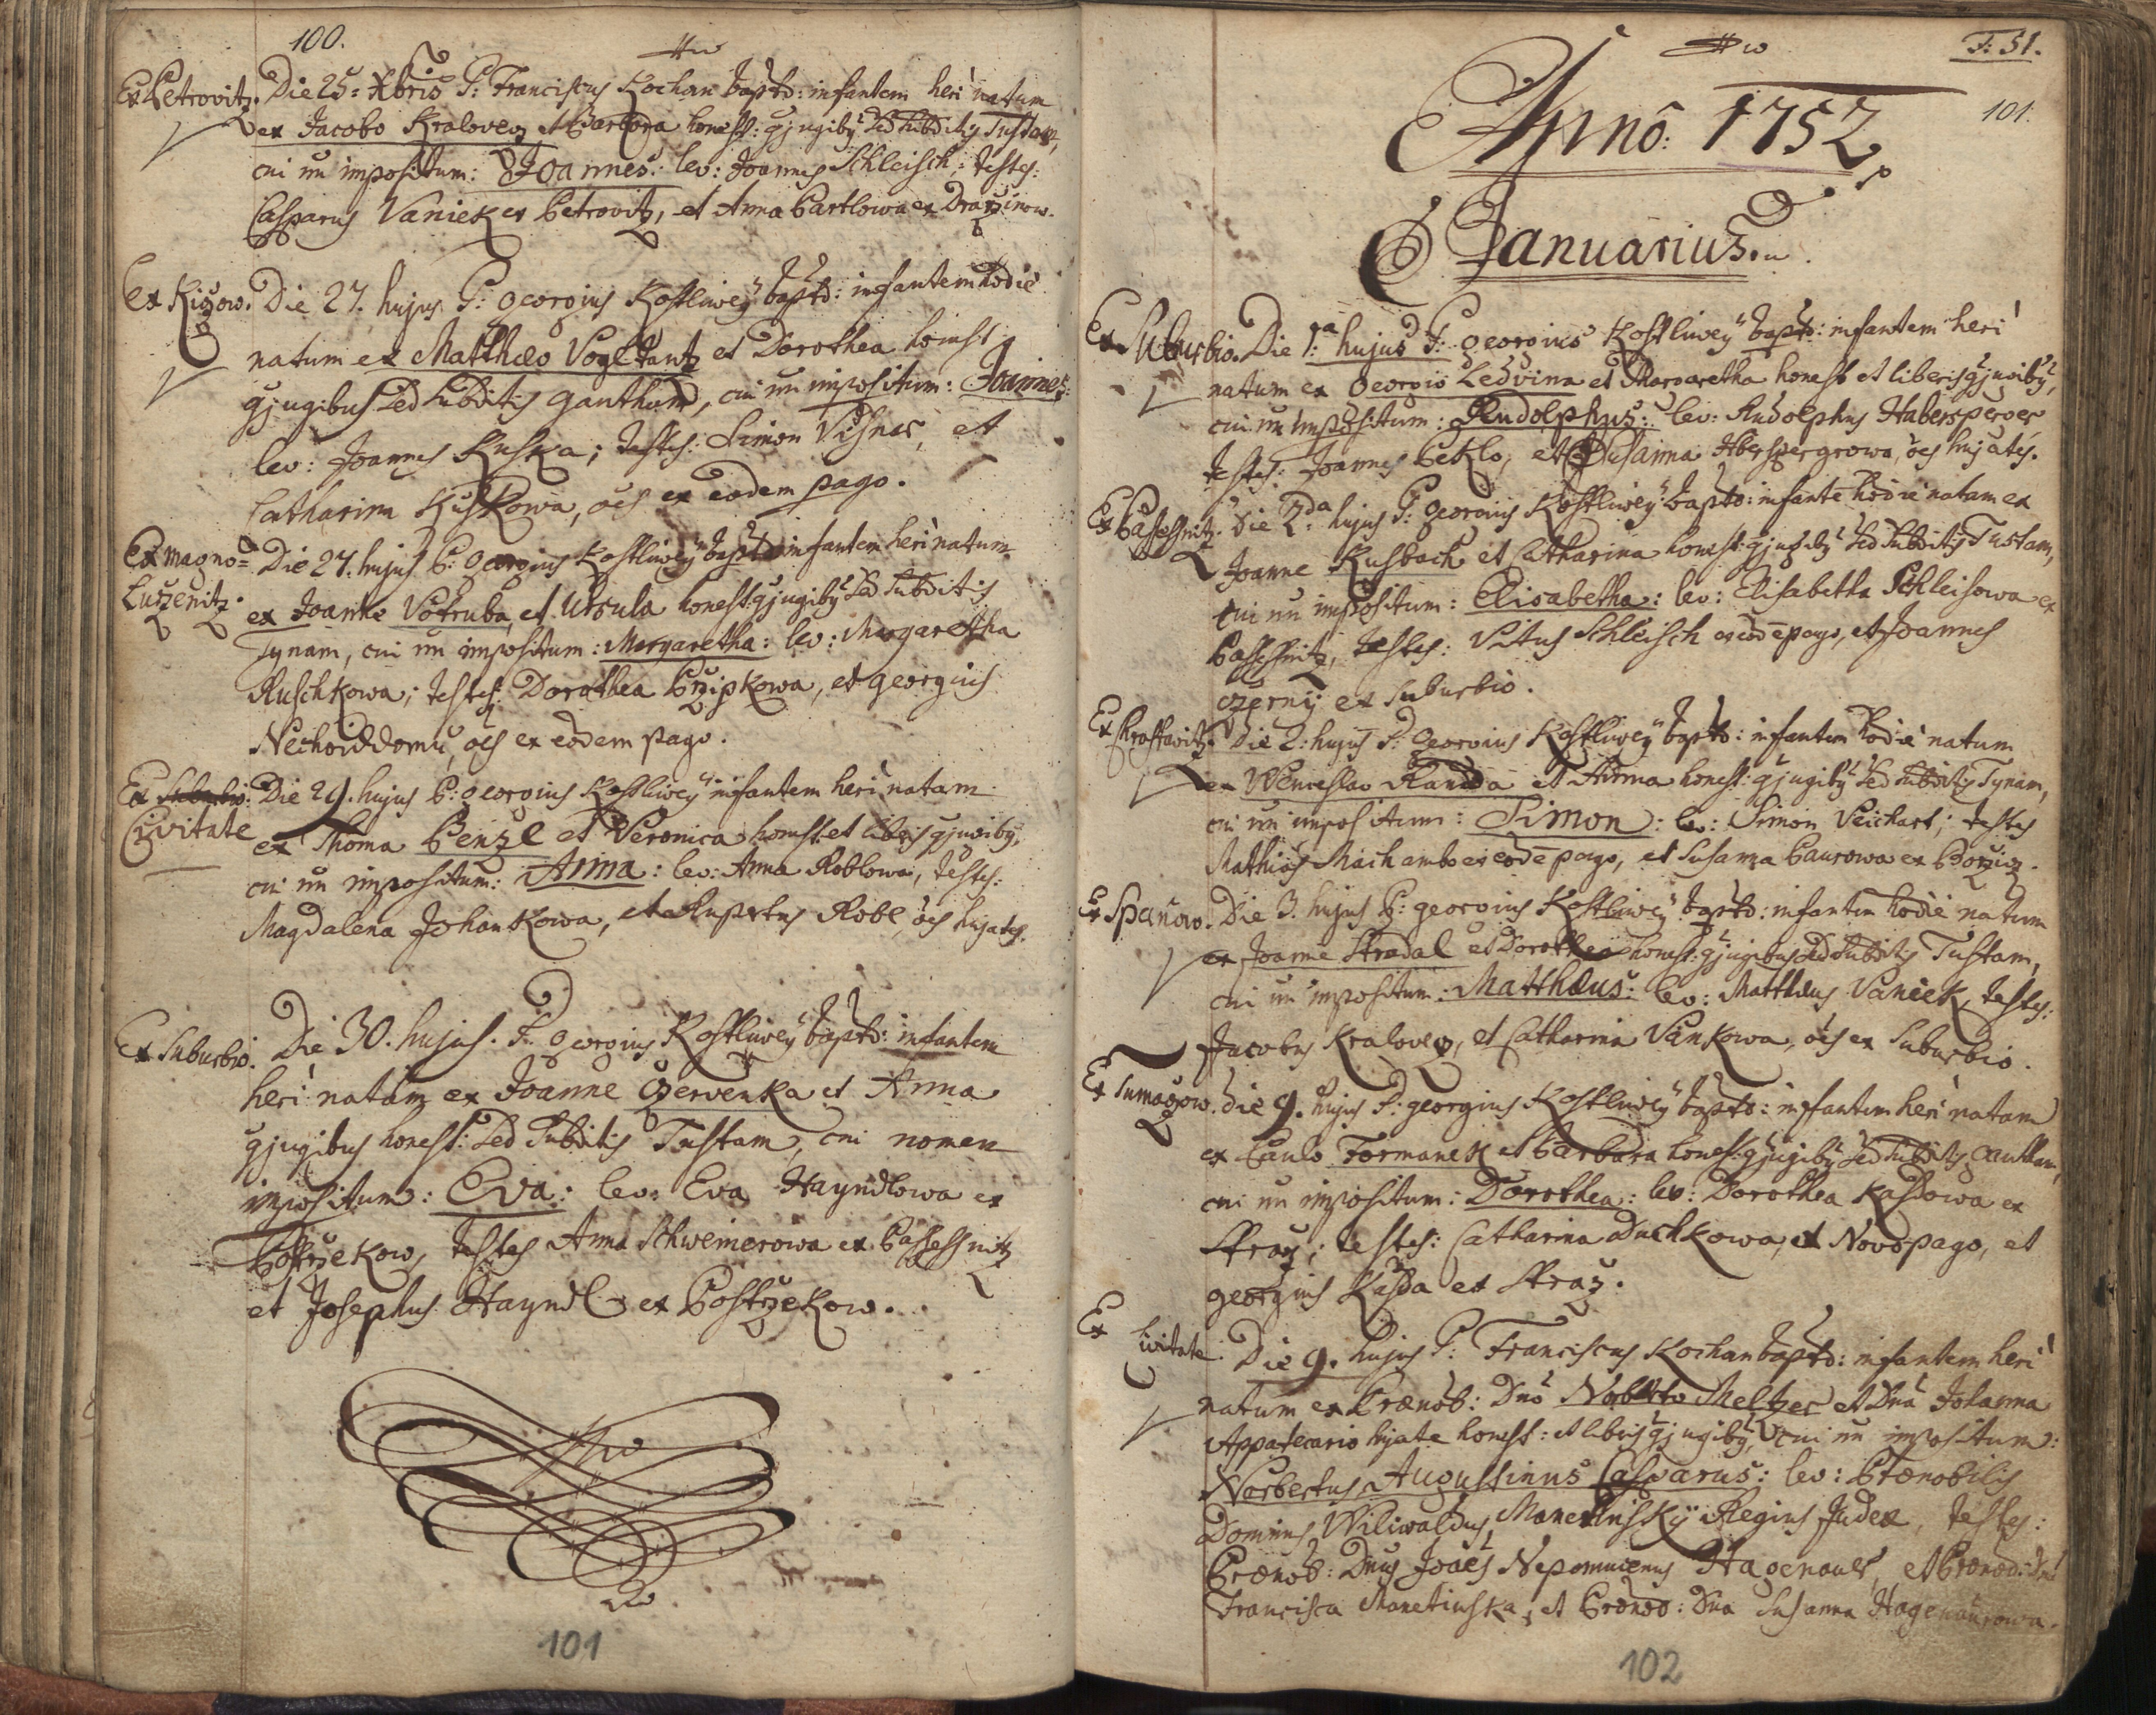 100.
Ex Petrovitz. Die 25: Xbris P: Franciscus Kochan bapto: infantem heri natum
ex Jacobo Kralovez et Barbara honest: gjugiby sed subditis Tustam,
cui nn impositum: Joannes: lev: Joannes Schleisch, testes:
Casparus Vaniek ex Petrovitz, et Anna Bartlowa ex Drazinow.
Ex Kizow. Die 27. hujus P: georgius Kostliwey bapto: infantem hodie
natum ex Matthaeo Vogltantz et Dorothea honest
gjugibus sed subditis gauthum, cui nn impositum: Joannes:
lev: Joannes Kuska; testes: Simon Vischner, et
Catharina Kuskowa, oes ex eodem pago.
Ex magno=
Luzenitz.
Die 27. hujus P: georgius Kostliwey bapto infantem heri natum
ex Joanne Votruba, et Ursula honest: gjugiby sed subditis
Tynam, cui nn impositum: Margaretha: lev: Margaretha
Ruschkowa; testes: Dorothea Przipkowa, et georgius
Nechoiddomu, oes ex eodem pago.
Ex
Civitate
Die 29. hujus P: georgius Kostliwey infantem heri natam
ex Thoma Penzl et Veronica honest et liberis gjugiby,
cui nn impositum: Anna: lev: Anna Roblowa, testes:
Magdalena Johankowa, et Rupertus Robl, oes hujates.
Ex Suburbio. Die 30. hujus. P. georgius Kostliwey bapto: infantem
heri natam ex Joanne Czervenka et Anna
gjugibus honest: sed subditis Tustam, cui nomen
impositum: Eva: lev: Eva Hayndlowa ex
Postrzekow, testes Anna Schweinerowa ex Passeschnitz
et Josephus Hayndl ex Postrzekow.
101
F: 51.
101.
Anno: 1752.
Januarius.
Ex Suburbio. Die 1.a hujus P: georgius Kostliwey bapto: infantem heri
natum ex georgio Ledvina et Margaretha honest et liberis gjugiby,
cui nn impositum: Rudolphus: lev: Rudolphus Habersperger
testes: Joannes Peklo, et Susanna Haberspergrowa, oes hujates.
Ex Passeschnitz. Die 2.da hujus P: georgius Kostliwey bapto: infante hodie natam ex
Joanne Kusbach et Catharina honest: gjugiby sed subditis Tustam,
cui nn impositum: Elisabetha: lev: Elisabetha Schleisowa ex
Passeschnitz, testes: Vitus Schleisch ex eode pago, et Joannes
czerny ex suburbio.
Ex Chrastavitz. Die 2. hujus P: georgius Kostliwey bapto: infantem hodie natum
ex Wenceslao Randa et Anna honest: gjugiby sed subditis Tynam,
cui nn impositum: Simon: lev: Simon Peichart; testes
Mathias Machambo ex eode pago, et Susanna Baurowa ex Borziz.
Ex Spanow. Die 3. hujus P: georgius Kostliwey bapto: infantem hodie natum
ex Joanne Stradal et Dorothea honest: gjugibus sed subditis Tustam,
cui nn impositum: Matthaeus: lev: Matthaeus Vaniek, testes:
Jacobus Kralovez, et Catharina Vankowa, oes ex Suburbio.
Ex Tumazow. Die 9. hujus P: georgius Kostliwey bapto: infantem heri natam
ex Paulo Formanek et Barbara honest: gjugiby sed subditis gautham,
cui nn impositum: Dorothea: lev: Dorothea Kassdowa ex
Straz; testes: Catharina Duchkowa, ex Novopago, et
georgius Kassda ex Straz.
Ex Civitate. Die 9. hujus P: Franciscus Kochan bapto: infantem heri
natum ex Praenob: Dno Norberto Meltzer et Dna Johanna
Appatecario hujate honest: et liberis gjugiby, cui nn impositum:
Norbertus, Augustinus Casparus: lev: Praenobilis
Dominus Wiliwaldus, Manetinsky Regius Judex, testes:
Praenob: Dnus Joaes Nepomucenus Hagenauer, et Praenob: Dna
Francisca Manetinska; et Praenob: Dna Susanna Hagenaurowa.
102